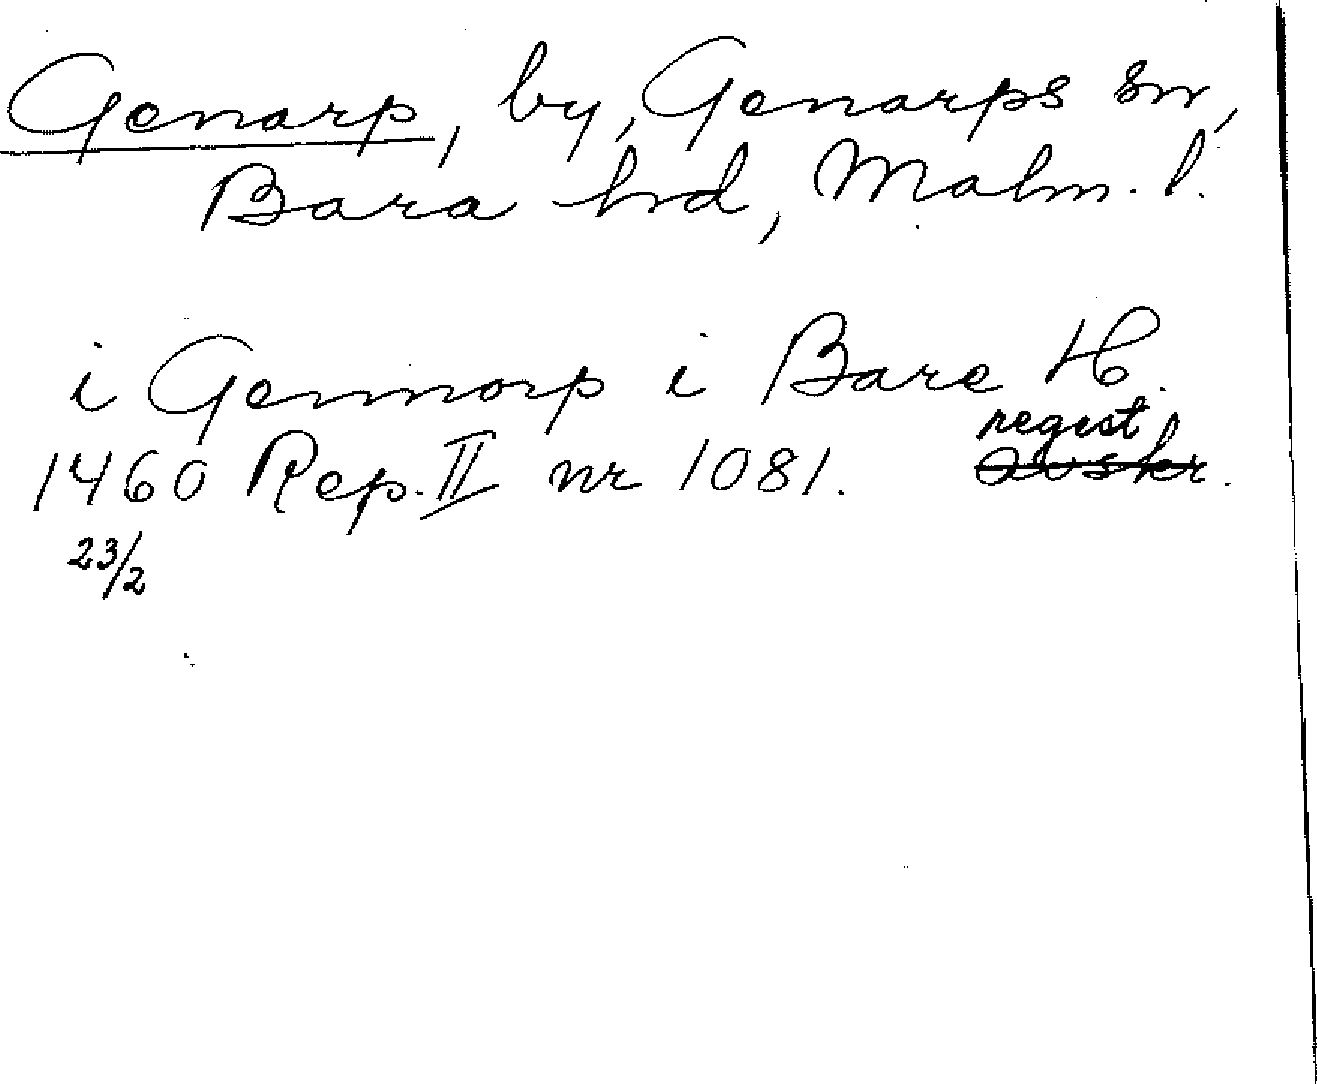 Genarp, by, Genarps sn,
Bara hd, Malm. l.
i Gennorp i Bare H.
regist
1460 Rep. II nr 1081. avskr.
23/2